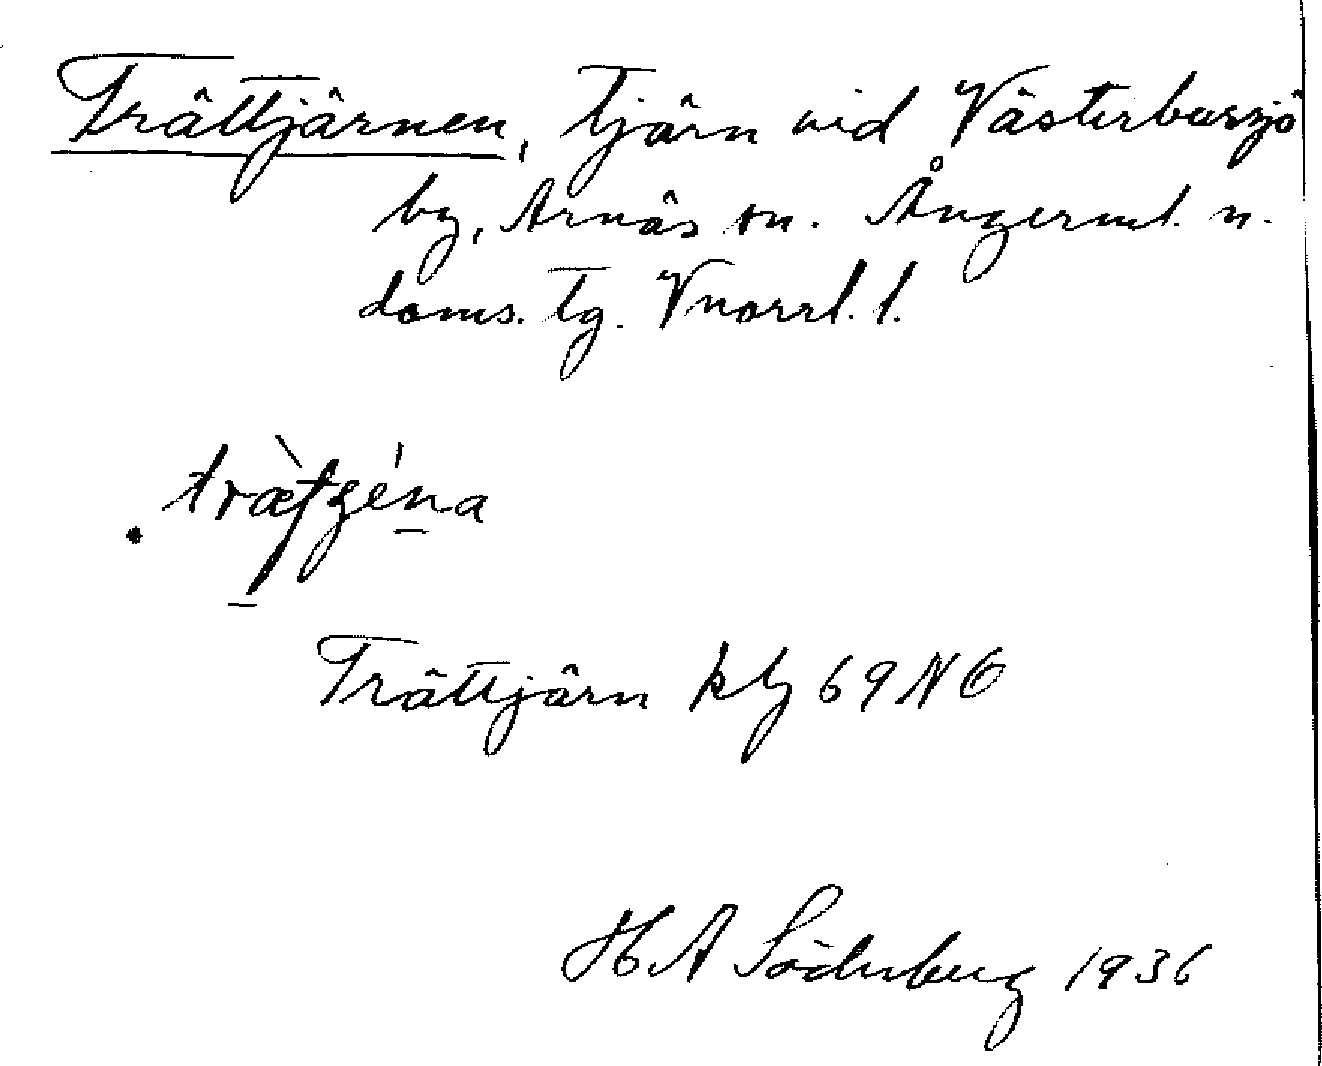 Trättjärnen, tjärn vid Västerbasjö
by, Arnäs sn. Ångerml. n.
doms. tg. Vnorrl. l.
Trättjärn kbl 69 NO
H A Söderberg 1936